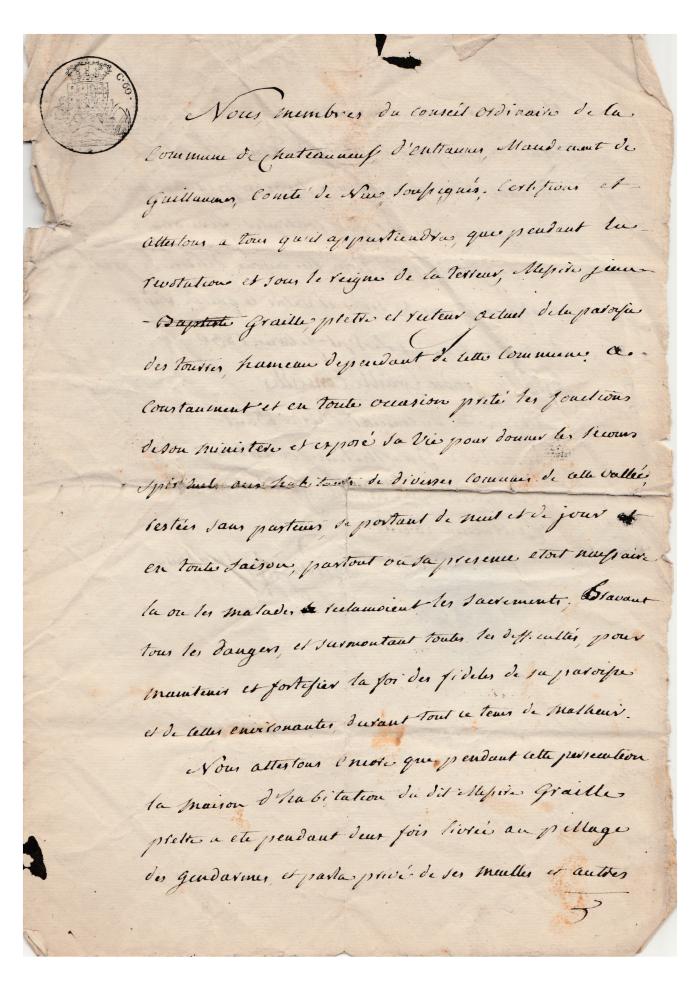 C. 60.
Nous membres du conseil ordinaire de la
Commune de Chateauneuf d'entraunes, Mandement de
Guillaumes, Comté de Nice, soussignés; Certifions et
attestons a tous qu'il appartiendra, que pendant la
revolution et sous le reigne de la terreur, Messire jean
- Baptiste Graille pretre et recteur actuel de la paroisse
des tourres, hameau dependant de cette Commune a
Constament et en toute occasion preté les fonctions
de son ministère et exposé sa vie pour donner les secours
spirituels aux habitants de diverses communes de cette vallée,
restées sans pasteurs, se portant de nuit et de jour et
en toute saison, partout ou sa presence etoit necessaire
la ou les malades reclamoient les sacrements, Bravant
tous les dangers, et surmontant toutes les difficultés, pour
maintenir et fortifier la foi des fideles de sa paroisse
et de celles environantes, durant tout ce tems de malheur.
Nous attestons encore que pendant cette persecution
la maison d'habitation du dit Messire Graille
pretre a eté pendant deux fois livrée au pillage
des gendarmes, et par la privé de ses meubles et autres